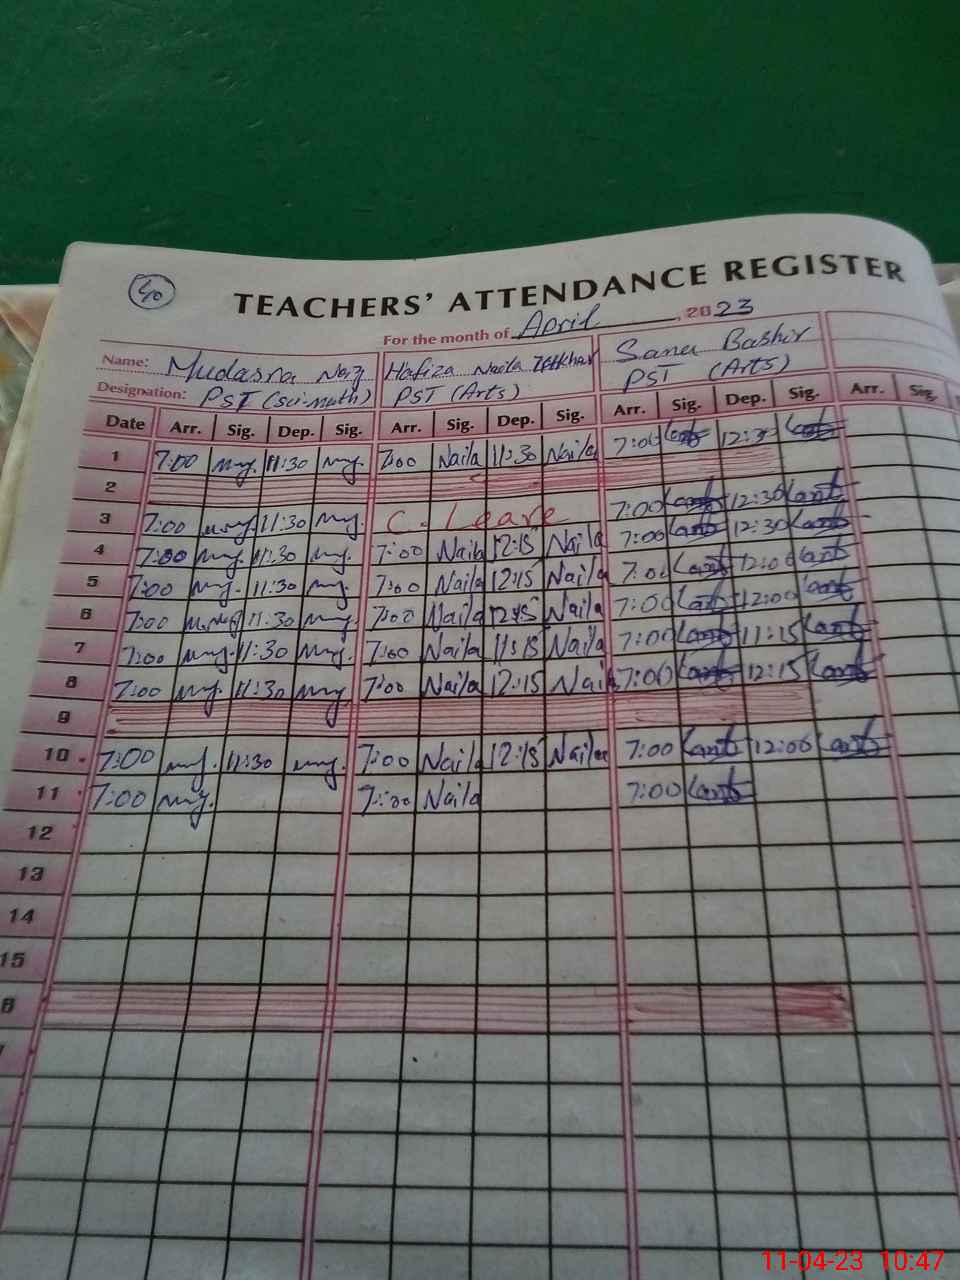 40
TEACHERS' ATTENDANCE REGISTER
For the month of April, 2023
Name: Mudasra Naz Hafiza Naila Iftkhar Sana Bashir
Designation: PST (Sci-math) PST (Arts) PST (Arts)
Date Arr. Sig. Dep. Sig. Arr. Sig. Dep. Sig. Arr. Sig. Dep. Sig. Arr. Sig.
1 7:00 11:30 7:00 Naila 11:30 Naila 7:00 12:30
2
3 7:00 11:30 C. Leave 7:00 12:30
4 7:00 11:30 7:00 Naila 12:15 Naila 7:00 12:30
5 7:00 11:30 7:00 Naila 12:15 Naila 7:00 12:00
6 7:00 11:30 7:00 Naila 12:15 Naila 7:00 12:00
7 7:00 11:30 7:00 Naila 11:15 Naila 7:00 11:15
8 7:00 11:30 7:00 Naila 12:15 Naila 7:00 12:15
9
10 7:00 11:30 7:00 Naila 12:15 Naila 7:00 12:00
11 7:00 7:00 Naila 7:00
12
13
14
15
6
11-04-23 10:47